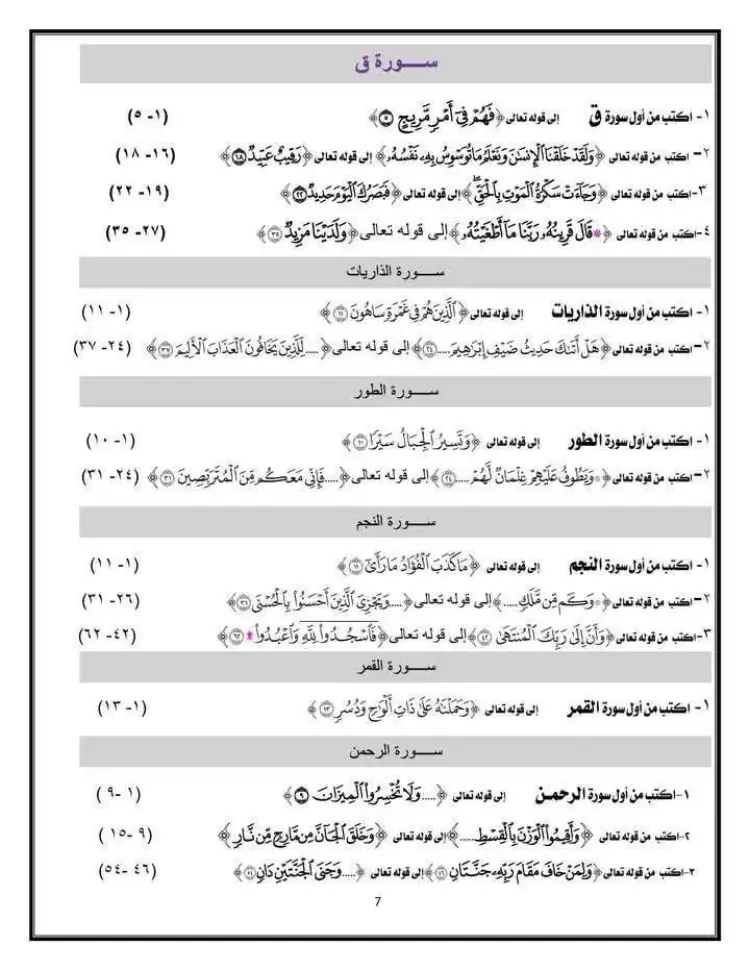 ســـورة ق
١- اكتب من أول سورة ق إلى قوله تعالى ﴿فَهُمْ فِىٓ أَمْرٍ مَّرِيجٍ ٥﴾ (١- ٥)
٢- اكتب من قوله تعالى ﴿وَلَقَدْ خَلَقْنَا ٱلْإِنسَٰنَ وَنَعْلَمُ مَا تُوَسْوِسُ بِهِۦ نَفْسُهُۥ﴾ إلى قوله تعالى ﴿رَقِيبٌ عَتِيدٌ ١٨﴾ (١٦- ١٨)
٣- اكتب من قوله تعالى ﴿وَجَآءَتْ سَكْرَةُ ٱلْمَوْتِ بِٱلْحَقِّ ۖ﴾ إلى قوله تعالى ﴿فَبَصَرُكَ ٱلْيَوْمَ حَدِيدٌ ٢٢﴾ (١٩- ٢٢)
٤- اكتب من قوله تعالى ﴿* قَالَ قَرِينُهُۥ رَبَّنَا مَآ أَطْغَيْتُهُۥ﴾ إلى قوله تعالى ﴿وَلَدَيْنَا مَزِيدٌ ٣٥﴾ (٢٧- ٣٥)
ســـورة الذاريات
١- اكتب من أول سورة الذاريات إلى قوله تعالى ﴿ٱلَّذِينَ هُمْ فِى غَمْرَةٍ سَاهُونَ ١١﴾ (١- ١١)
٢- اكتب من قوله تعالى ﴿هَلْ أَتَىٰكَ حَدِيثُ ضَيْفِ إِبْرَٰهِيمَ..... ٢٤﴾ إلى قوله تعالى ﴿..... لِّلَّذِينَ يَخَافُونَ ٱلْعَذَابَ ٱلْأَلِيمَ ٣٧﴾ (٢٤- ٣٧)
ســـورة الطور
١- اكتب من أول سورة الطور إلى قوله تعالى ﴿وَتَسِيرُ ٱلْجِبَالُ سَيْرًا ١٠﴾ (١- ١٠)
٢- اكتب من قوله تعالى ﴿* وَيَطُوفُ عَلَيْهِمْ غِلْمَانٌ لَّهُمْ ..... ٢٤﴾ إلى قوله تعالى ﴿.....فَإِنِّى مَعَكُم مِّنَ ٱلْمُتَرَبِّصِينَ ٣١﴾ (٢٤- ٣١)
ســـورة النجم
١- اكتب من أول سورة النجم إلى قوله تعالى ﴿مَا كَذَبَ ٱلْفُؤَادُ مَا رَأَىٰٓ ١١﴾ (١- ١١)
٢- اكتب من قوله تعالى ﴿* وَكَم مِّن مَّلَكٍ .....﴾ إلى قوله تعالى ﴿.....وَيَجْزِىَ ٱلَّذِينَ أَحْسَنُوا۟ بِٱلْحُسْنَى ٣١﴾ (٢٦- ٣١)
٣- اكتب من قوله تعالى ﴿وَأَنَّ إِلَىٰ رَبِّكَ ٱلْمُنتَهَىٰ ٤٢﴾ إلى قوله تعالى ﴿فَٱسْجُدُوا۟ لِلَّهِ وَٱعْبُدُوا۟ * ٦٢﴾ (٤٢- ٦٢)
ســـورة القمر
١- اكتب من أول سورة القمر إلى قوله تعالى ﴿وَحَمَلْنَٰهُ عَلَىٰ ذَاتِ أَلْوَٰحٍ وَدُسُرٍ ١٣﴾ (١- ١٣)
ســـورة الرحمن
١- اكتب من أول سورة الرحمن إلى قوله تعالى ﴿..... وَلَا تُخْسِرُوا۟ ٱلْمِيزَانَ ٩﴾ (١ -٩)
٢- اكتب من قوله تعالى ﴿وَأَقِيمُوا۟ ٱلْوَزْنَ بِٱلْقِسْطِ .....﴾ إلى قوله تعالى ﴿وَخَلَقَ ٱلْجَآنَّ مِن مَّارِجٍ مِّن نَّارٍ﴾ (٩ -١٥)
٣- اكتب من قوله تعالى ﴿وَلِمَنْ خَافَ مَقَامَ رَبِّهِۦ جَنَّتَانِ ٤٦﴾ إلى قوله تعالى ﴿..... وَجَنَى ٱلْجَنَّتَيْنِ دَانٍ ٥٤﴾ (٤٦ -٥٤)
7